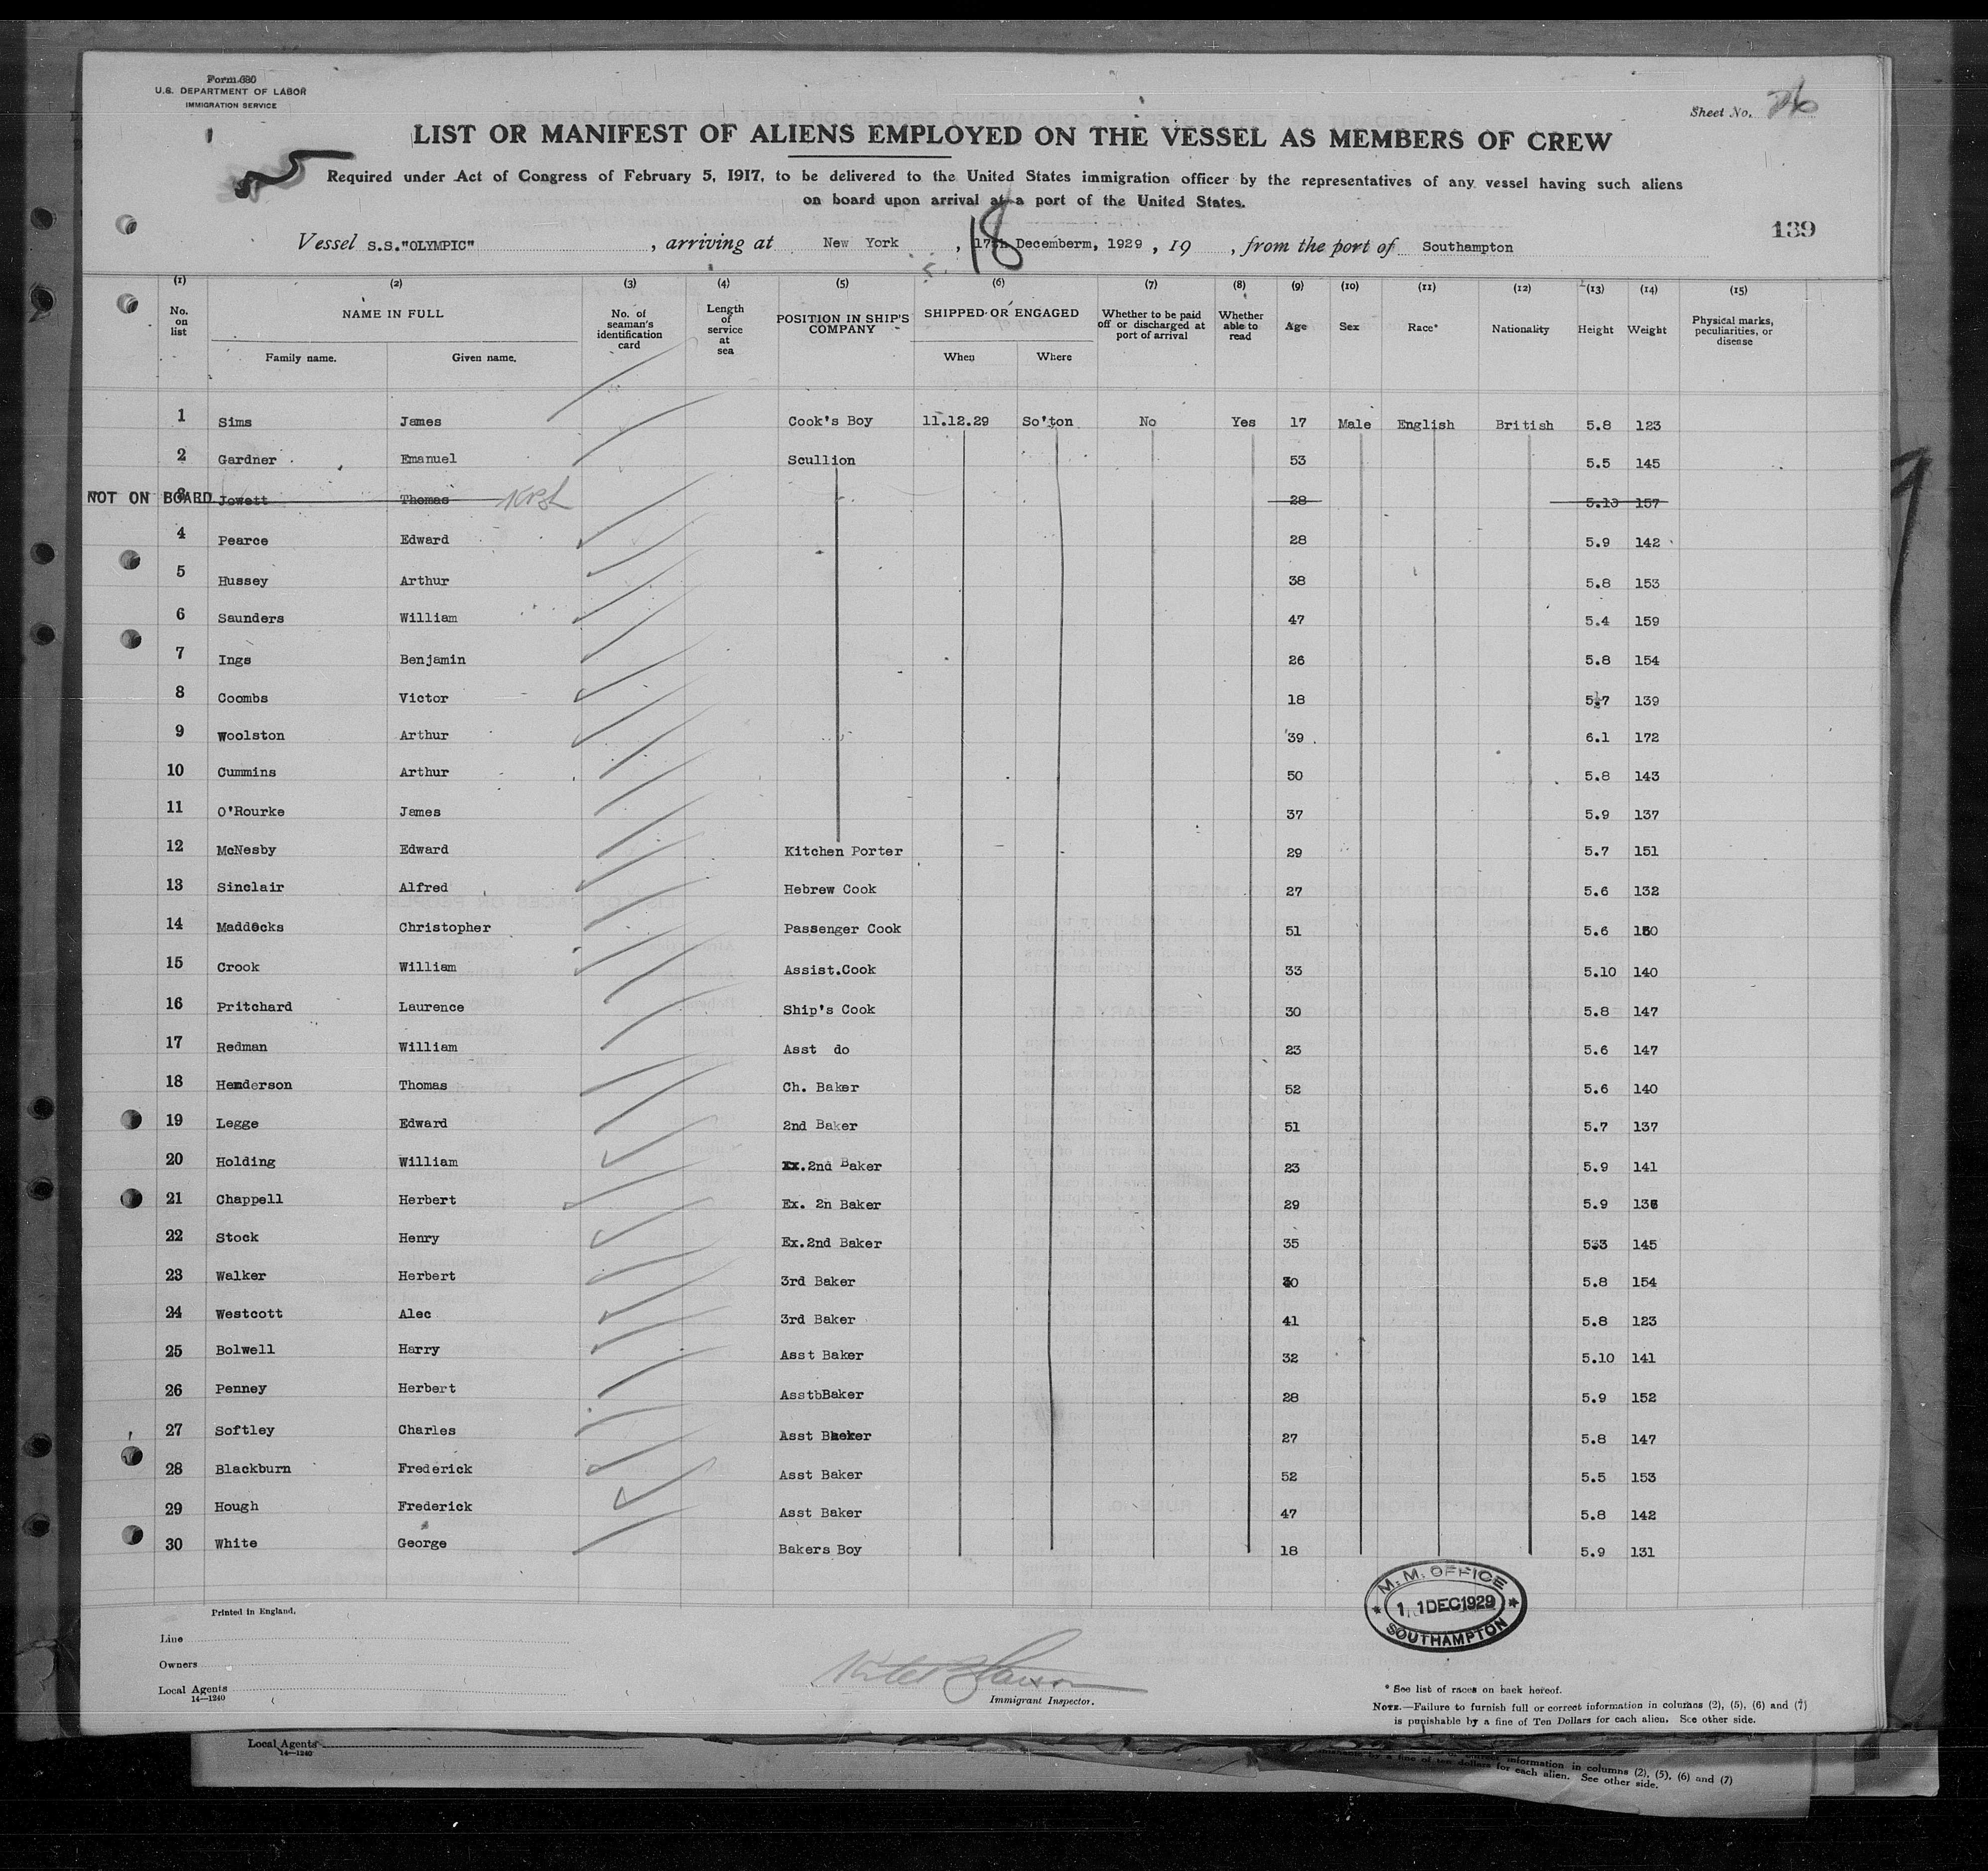 Form 680
U.S. DEPARTMENT OF LABOR
IMMIGRATION SERVICE
Sheet No. 26
LIST OR MANIFEST OF ALIENS EMPLOYED ON THE VESSEL AS MEMBERS OF CREW
5
Required under Act of Congress of February 5, 1917, to be delivered to the United States immigration officer by the representatives of any vessel having such aliens
on board upon arrival at a port of the United States.
139
Vessel S.S."OLYMPIC" , arriving at New York , 17th Decemberm, 1929 , 19 , from the port of Southampton
18
(1) (2) (3) (4) (5) (6) (7) (8) (9) (10) (11) (12) (13) (14) (15)
No. on list NAME IN FULL No. of seaman's identification card Length of service at sea POSITION IN SHIP'S COMPANY SHIPPED OR ENGAGED Whether to be paid off or discharged at port of arrival Whether able to read Age Sex Race* Nationality Height Weight Physical marks, peculiarities, or disease
Family name. Given name. When Where
1 Sims James Cook's Boy 11.12.29 So'ton No Yes 17 Male English British 5.8 123
2 Gardner Emanuel Scullion 53 5.5 145
NOT ON BOARD 3 Jowett Thomas 28 5.10 157
4 Pearce Edward 28 5.9 142
5 Hussey Arthur 38 5.8 153
6 Saunders William 47 5.4 159
7 Ings Benjamin 26 5.8 154
8 Coombs Victor 18 5.7 139
9 Woolston Arthur 39 6.1 172
10 Cummins Arthur 50 5.8 143
11 O'Rourke James 37 5.9 137
12 McNesby Edward Kitchen Porter 29 5.7 151
13 Sinclair Alfred Hebrew Cook 27 5.6 132
14 Maddocks Christopher Passenger Cook 51 5.6
15 Crook William Assist.Cook 33 5.10 140
16 Pritchard Laurence Ship's Cook 30 5.8 147
17 Redman William Asst do 23 5.6 147
18 Henderson Thomas Ch. Baker 52 5.6 140
19 Legge Edward 2nd Baker 51 5.7 137
20 Holding William 2nd Baker 23 5.9 141
21 Chappell Herbert Ex. 2n Baker 29 5.9
22 Stock Henry Ex.2nd Baker 35 533 145
23 Walker Herbert 3rd Baker 5.8 154
24 Westcott Alec 3rd Baker 41 5.8 123
25 Bolwell Harry Asst Baker 32 5.10 141
26 Penney Herbert AsstbBaker 28 5.9 152
27 Softley Charles Asst Baker 27 5.8 147
28 Blackburn Frederick Asst Baker 52 5.5 153
29 Hough Frederick Asst Baker 47 5.8 142
30 White George Bakers Boy 18 5.9 131
M.M. OFFICE
11 DEC 1929
SOUTHAMPTON
Printed in England.
Line
Owners
Local Agents
14—1240
Immigrant Inspector.
* See list of races on back hereof.
NOTE.—Failure to furnish full or correct information in columns (2), (5), (6) and (7)
is punishable by a fine of Ten Dollars for each alien. See other side.
Local Agents
14—1240
information in columns (2), (5), (6) and (7)
punishable by a fine of ten dollars for each alien. See other side.